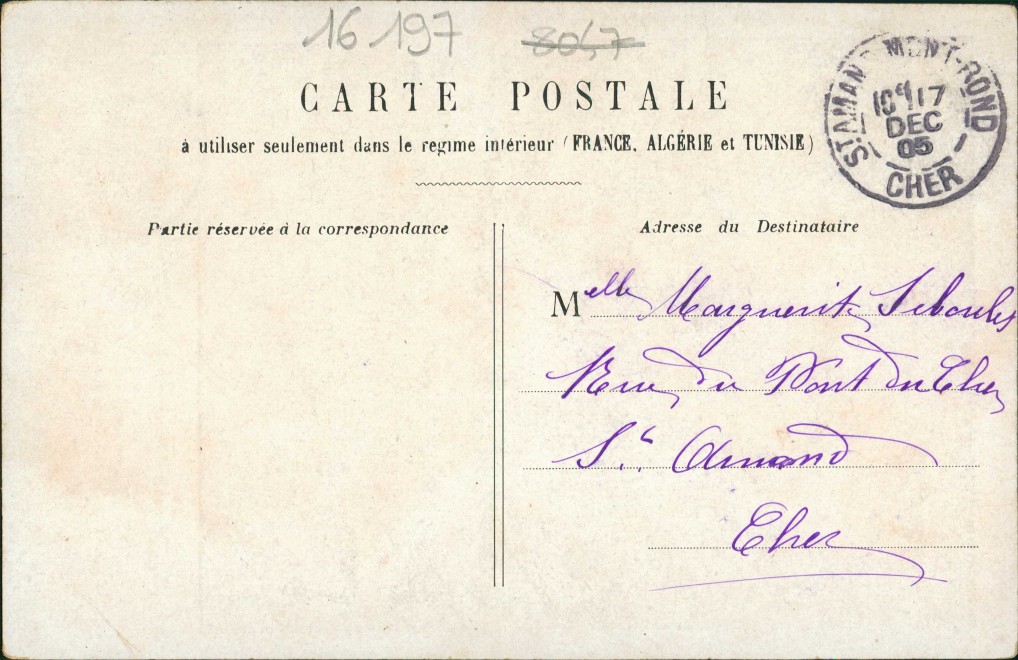 16 197 8047
CARTE POSTALE
à utiliser seulement dans le regime intérieur (FRANCE, ALGÉRIE et TUNISIE)
ST AMAND-MONT-ROND
17
DEC
05
CHER
Partie réservée à la correspondance
Adresse du Destinataire
Melle Marguerite
Rue du Pont du Cher
St. Amand
Cher